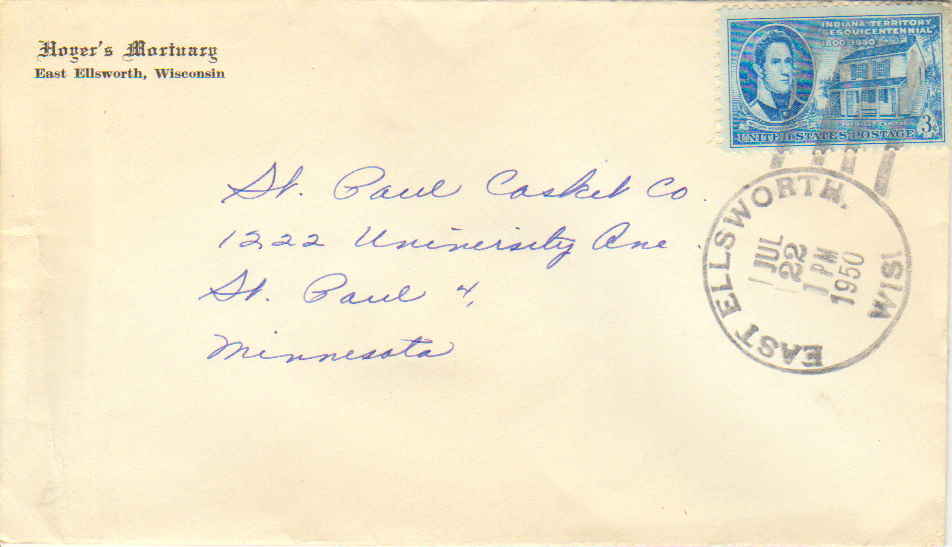 Hoyer's Mortuary
East Ellsworth, Wisconsin
INDIANA TERRITORY
SESQUICENTENNIAL
1800-1950
UNITED STATES POSTAGE 3¢
EAST ELLSWORTH, WIS
JUL
22
1 PM
1950
St. Paul Casket Co.
1222 University Ave.
St. Paul 4,
Minnesota